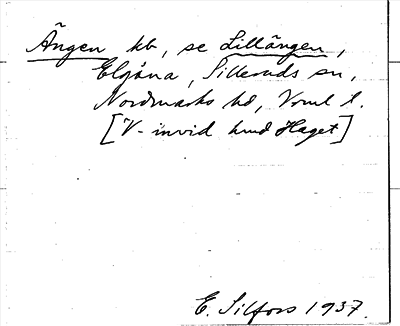 Ängen kb, se Lillängen,
Elgåna, Silleruds sn,
Nordmarks hd, Vrml l.
[V- invid hmd Haget]
E. Silfors 1937.